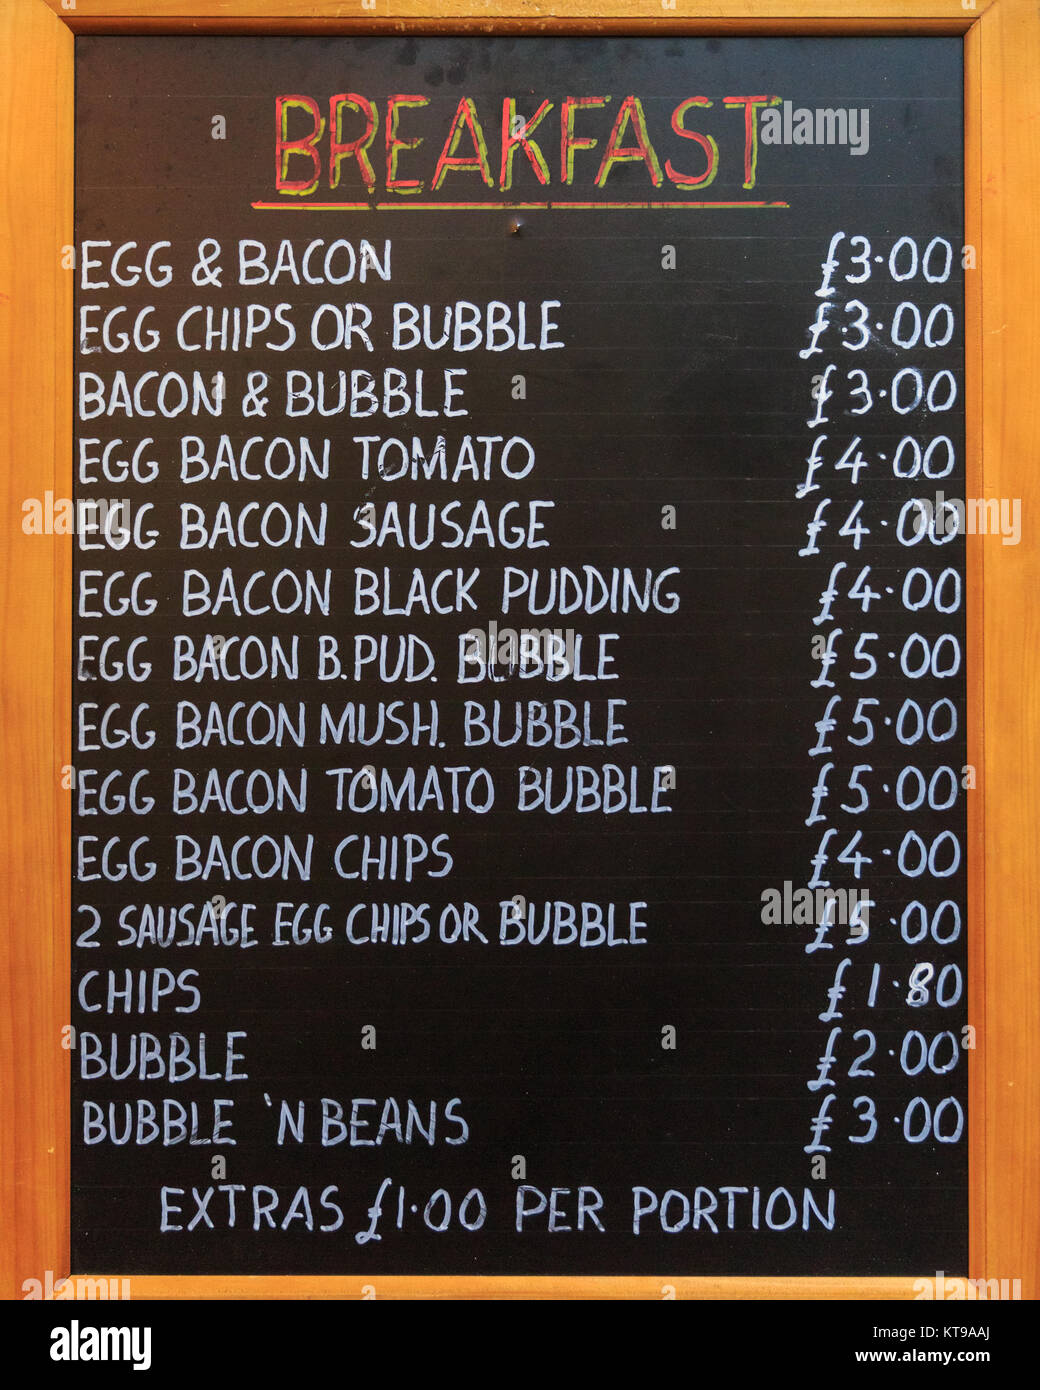 BREAKFAST
EGG & BACON £3·00
EGG CHIPS OR BUBBLE £3·00
BACON & BUBBLE £3·00
EGG BACON TOMATO £4·00
EGG BACON SAUSAGE £4·00
EGG BACON BLACK PUDDING £4·00
EGG BACON B.PUD. BUBBLE £5·00
EGG BACON MUSH. BUBBLE £5·00
EGG BACON TOMATO BUBBLE £5·00
EGG BACON CHIPS £4·00
2 SAUSAGE EGG CHIPS OR BUBBLE £5·00
CHIPS £1·80
BUBBLE £2·00
BUBBLE 'N BEANS £3·00
EXTRAS £1·00 PER PORTION
alamy stock photo
alamy
Image ID: KT9AAJ
www.alamy.com